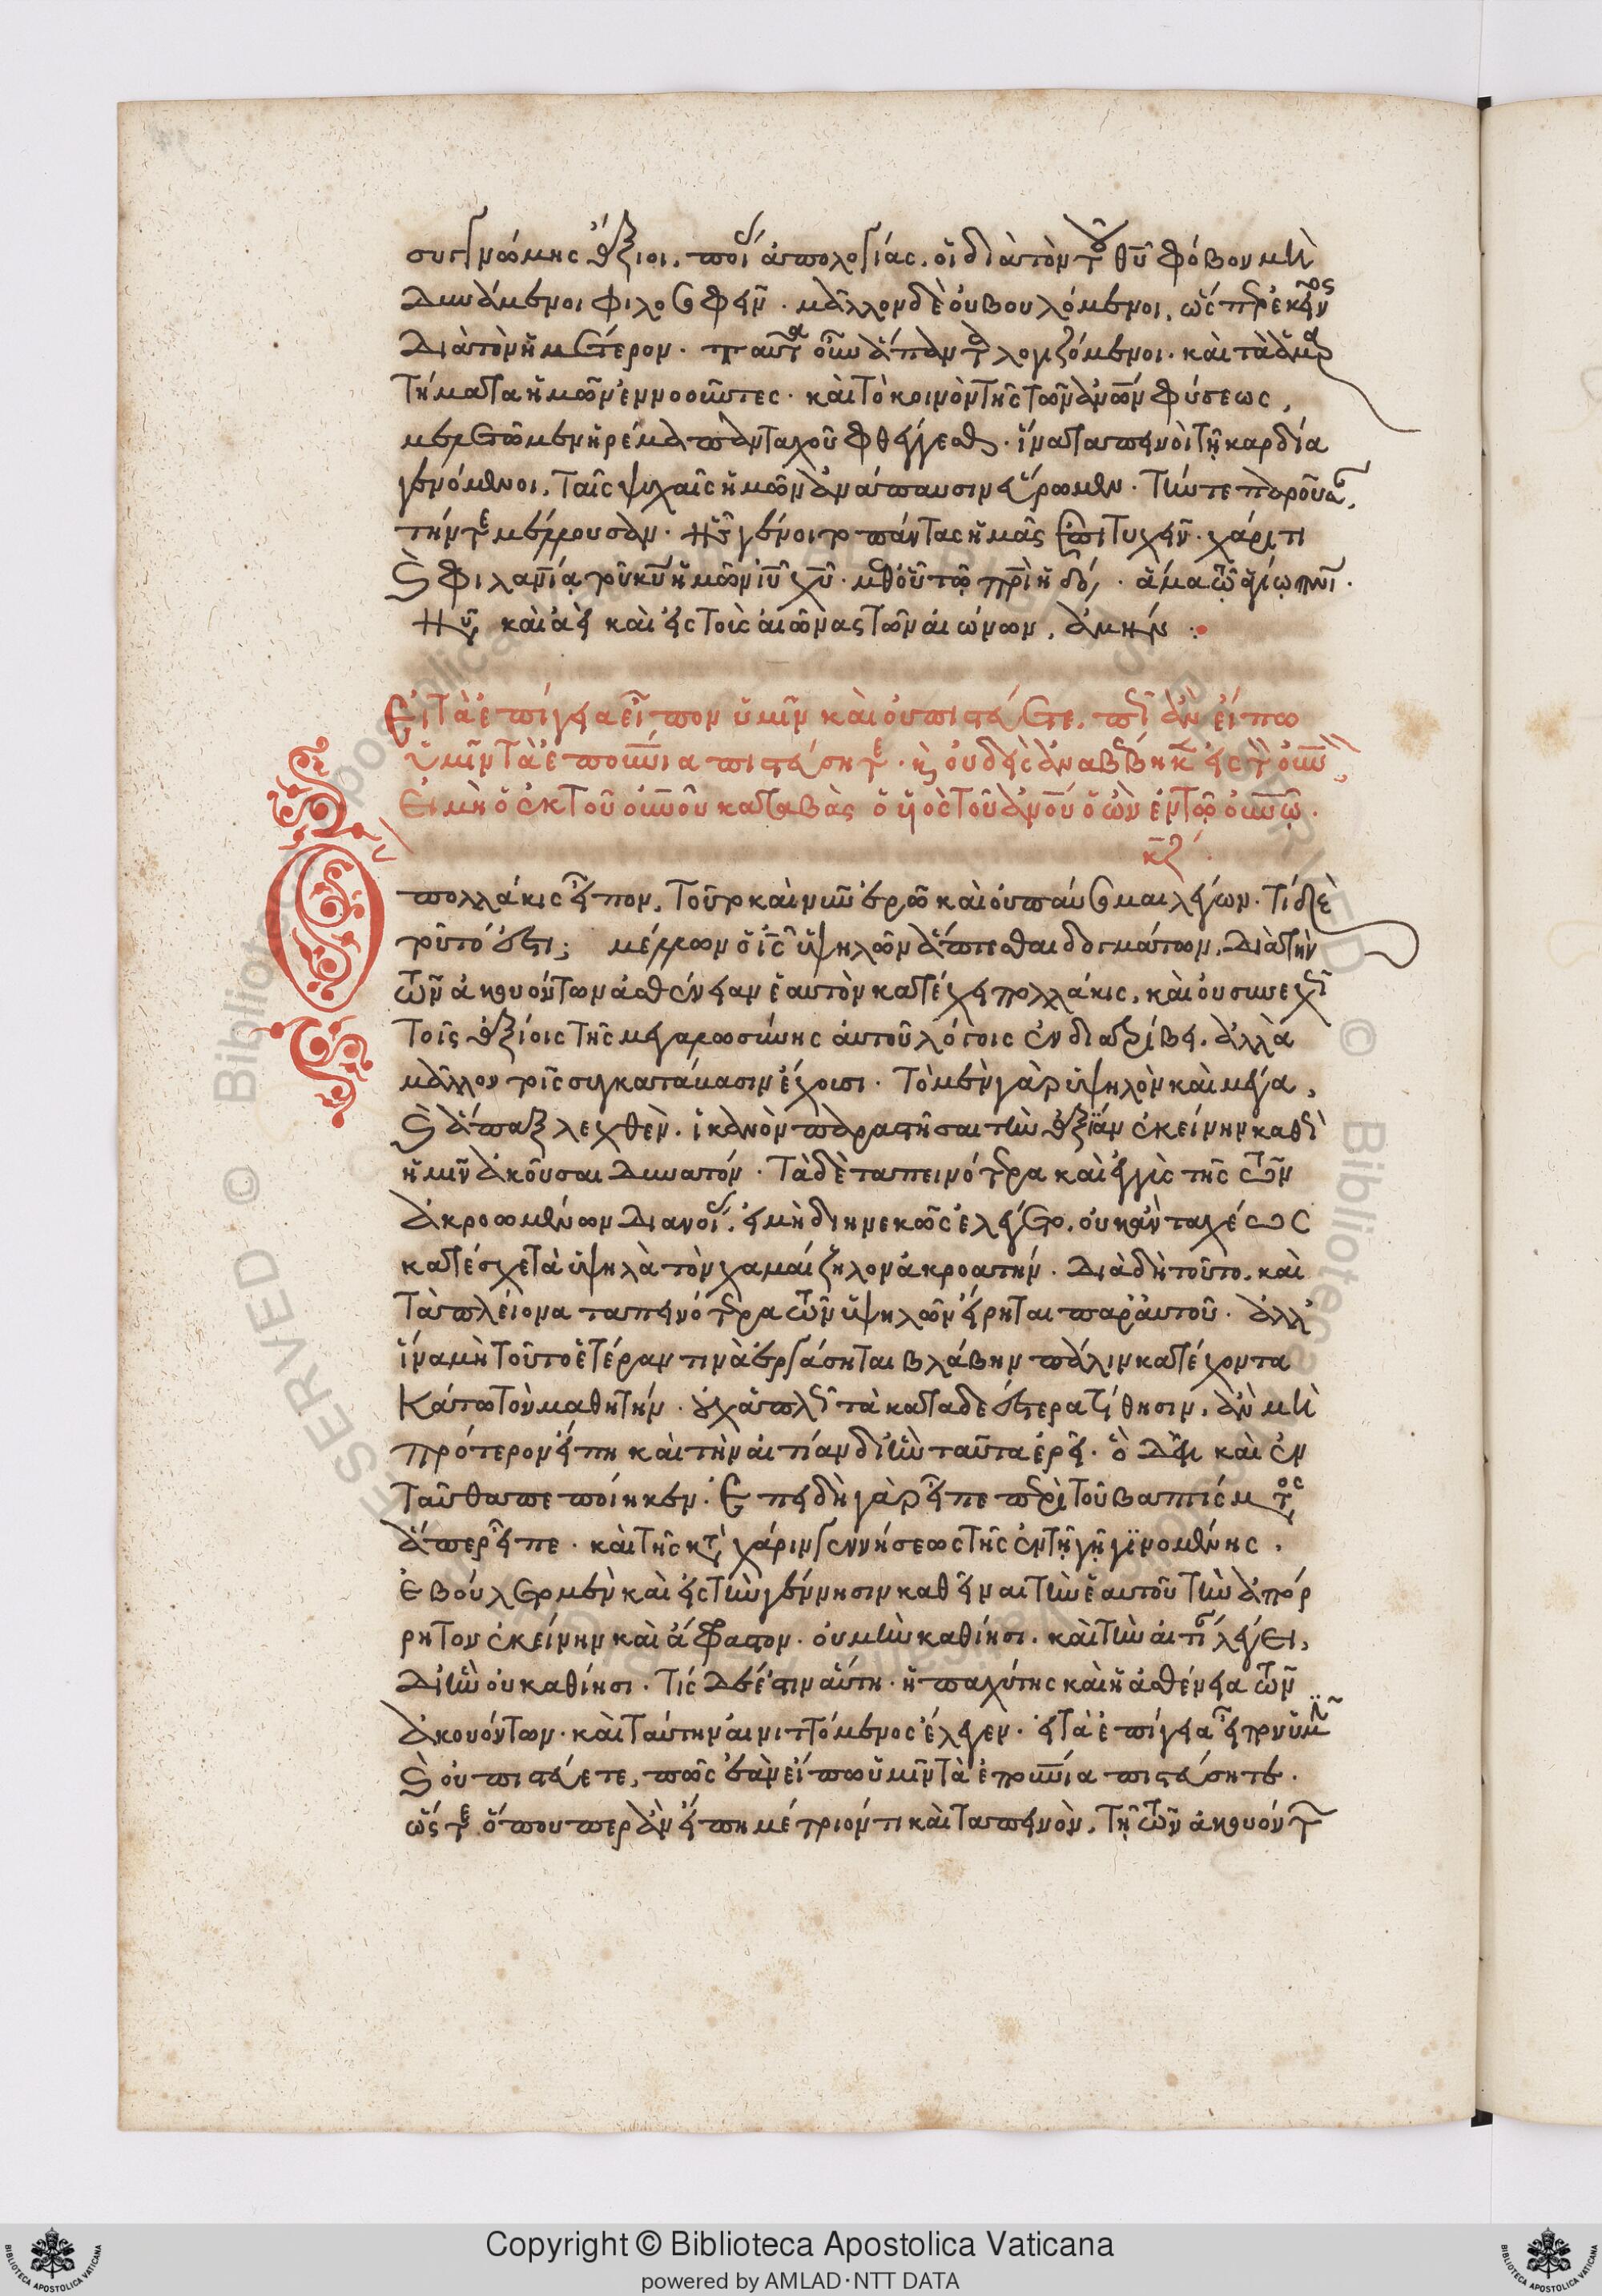 συγγνώμης ἄξιοι, ποί ἀπολογίας, οἱ διὰ τὸν τοῦ θυ φόβον μὴ
δυνάμενοι φιλοσοφεῖν. μᾶλλον δὲ οὐ βουλόμενοι, ὥσπερ ἐκεῖνος
διὰ τὸν ἡμέτερον. ταῦτ οὖν ἅπαντα λογιζόμενοι. καὶ τὰ ἁμαρ
τήματα ἡμῶν ἐννοοῦντες. καὶ τὸ κοινὸν τῆς τῶν ἀνων φύσεως,
μελετῶμεν ἠρέμα πανταχοῦ φθέγγεσθαι. ἵνα ταπεινοὶ τῇ καρδία
γενόμενοι, ταῖς ψυχαῖς ἡμῶν ἀνάπαυσιν εὕρωμεν. τήν τε παροῦσαν,
τήν τε μέλλουσαν. ἧς γένοιτο πάντας ἡμᾶς ἐπιτυχεῖν. χάριτι
καὶ φιλανίᾳ τοῦ κυ ἡμῶν ιυ χυ. μεθ' οὗ τῷ πρι ἡ δό. ἅμα τῷ ἁγίῳ πνι.
νῦν καὶ ἀεὶ καὶ εἰς τοὺς αἰῶνας τῶν αἰώνων, ἀμήν :
Εἰ τὰ ἐπίγεια εἶπον ὑμῖν καὶ οὐ πιστεύετε, πῶς ἂν εἴπω
ὑμῖν τὰ ἐπουνια πιστεύσητε. καὶ οὐδεὶς ἀναβέβηκεν εἰς τὸν οὐνον
Εἰ μὴ ὁ ἐκ τοῦ οὐνοῦ καταβὰς ὁ υἱὸς τοῦ ἀνου ὁ ὢν ἐν τῷ οὐνῷ.
κζ΄.
Ο πολλάκις εἶπον, τοῦτο καὶ νῦν ἐρῶ καὶ οὐ παύσομαι λέγων. τί δὲ
τοῦτό ἐστι; μέλλων ὁ ις ὑψηλῶν ἅπτεσθαι δογμάτων, διὰ τὴν
τῶν ἀκουόντων ἀσθένειαν ἑαυτὸν κατέχει πολλάκις, καὶ οὐ συνεχῶς
τοῖς ἀξίοις τῆς μεγαλωσύνης αὐτοῦ λόγοις ἐνδιατρίβει. ἀλλὰ
μᾶλλον τοῖς συγκατάβασιν ἔχουσι. τὸ μὲν γὰρ ὑψηλὸν καὶ μέγα,
καὶ ἅπαξ λεχθὲν, ἱκανὸν παραστῆσαι τὴν ἀξίαν ἐκείνην καθὼς
ἡμῖν ἀκοῦσαι δυνατόν. τὰ δὲ ταπεινότερα καὶ ἐγγὺς τῆς τῶν
ἀκροωμένων διανοίας, εἰ μὴ διηνεκῶς ἐλέγετο, οὐκ ἂν ταχέως
κατέσχε τὰ ὑψηλὰ τὸν χαμαίζηλον ἀκροατήν. διὰ δὴ τοῦτο, καὶ
τὰ πλείονα ταπεινότερα τῶν ὑψηλῶν εἴρηται παρ' αὐτοῦ. ἀλλ'
ἵνα μὴ τοῦτο ἑτέραν τινὰ ἐργάσηται βλάβην πάλιν κατέχοντα
κάτω τὸν μαθητήν. οὐχ ἁπλῶς τὰ καταδεέστερα τίθησιν, ἂν μὴ
πρότερον εἴπη καὶ τὴν αἰτίαν δι' ἣν ταῦτα ἐρεῖ. ὃ δὴ καὶ ἐν
ταῦθα πεποίηκεν. Ἐπειδὴ γὰρ εἶπε περὶ τοῦ βαπτίσματος
ἅπερ εἶπε. καὶ τῆς κατὰ χάριν γεννήσεως τῆς ἐν τῇ γῇ γινομένης,
ἐβούλετο μὲν καὶ εἰς τὴν γέννησιν καθεῖναι τὴν ἑαυτοῦ τὴν ἀπόρ
ρητον ἐκείνην καὶ ἄφατον. οὐ μὴν καθίησι. καὶ τὴν αἰτίαν λέγει,
δι' ἣν οὐ καθίησι. τίς δέ ἐστιν αὕτη. ἡ παχύτης καὶ ἡ ἀσθένεια τῶν
ἀκουόντων. καὶ ταύτην αἰνιττόμενος ἔλεγεν. εἰ τὰ ἐπίγεια εἶπον ὑμῖν
καὶ οὐ πιστεύετε, πῶς ἐὰν εἴπω ὑμῖν τὰ ἐπουνια πιστεύσητε.
ὥστε ὅπου περ ἂν εἴπη μέτριόν τι καὶ ταπεινὸν, τῇ τῶν ἀκουόντων